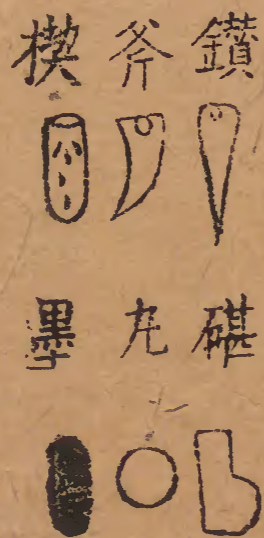 鑚斧楔
碪丸墨